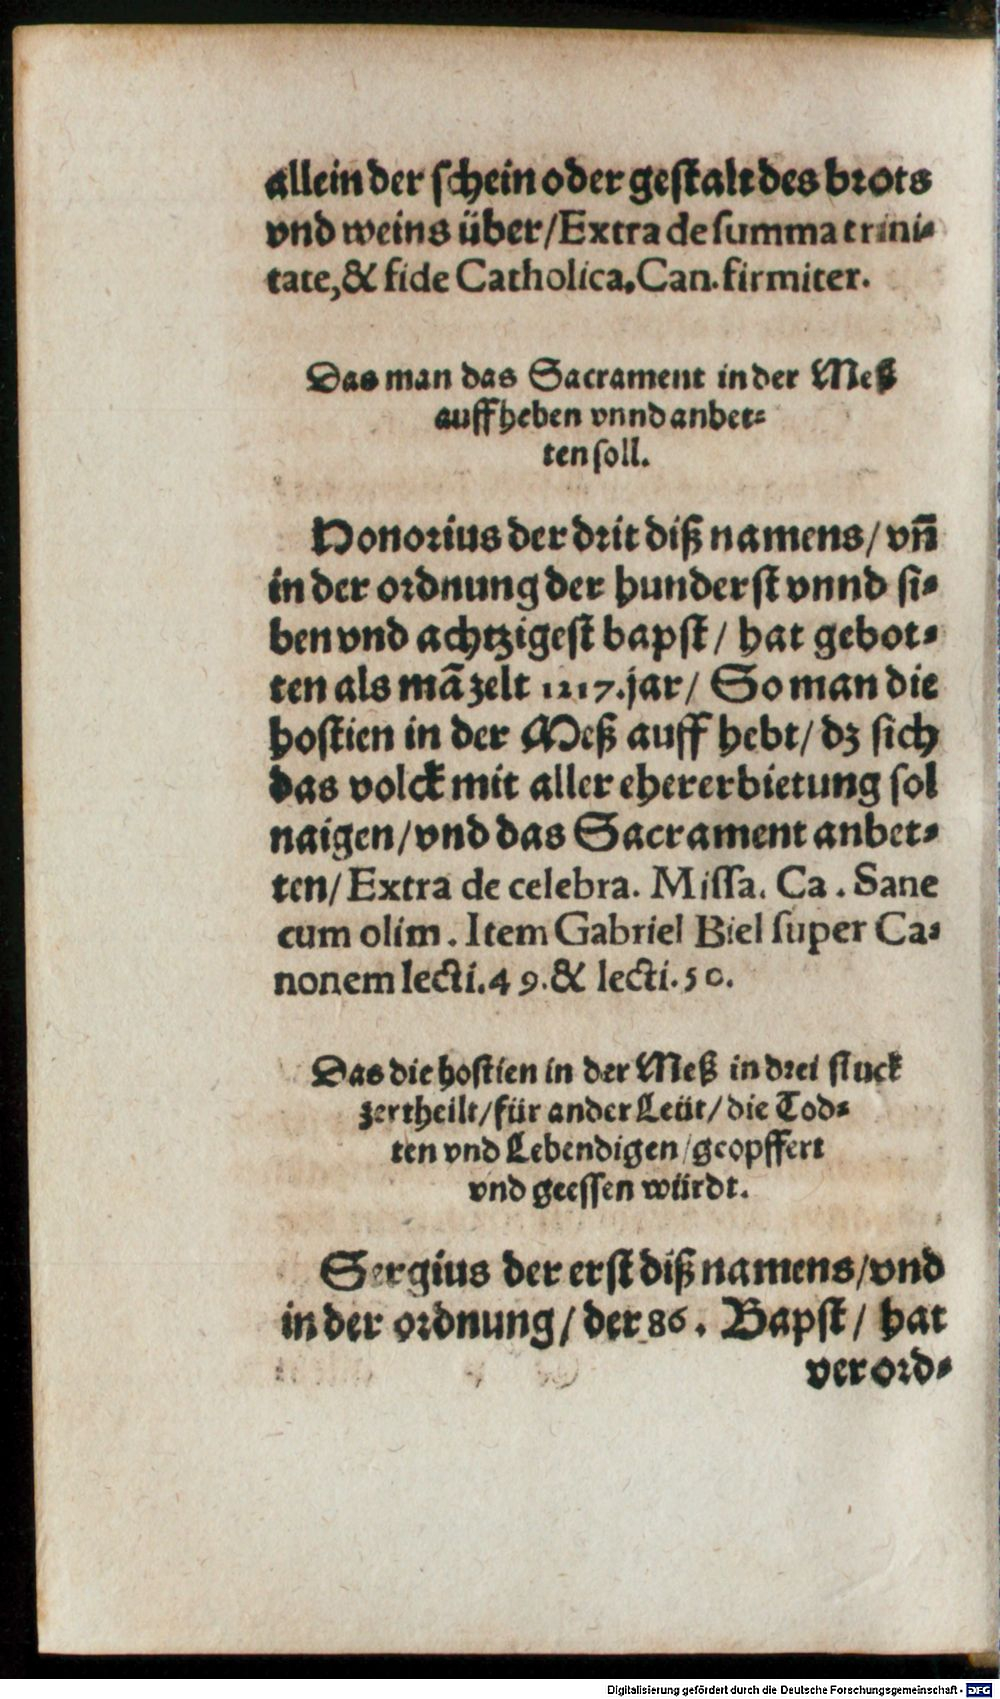 allein der schein oder gestalt des brots
vnd weins über/Extra de summa trini-
tate,& fide Catholica.Can.firmiter.
Das man das Sacrament in der Meß
auffheben vnnd anbet-
ten soll.
Honorius der drit diß namens/ vn̄
in der ordnung der hunderst vnnd si-
ben vnd achtzigest bapst/ hat gebot-
ten als mā zelt 1217.jar/ So man die
hostien in der Meß auff hebt/ dz sich
das volck mit aller ehererbietung sol
naigen/vnd das Sacrament anbet-
ten/Extra de celebra. Missa. Ca. Sane
cum olim. Item Gabriel Biel super Ca-
nonem lecti.49.& lecti.50.
Das die hostien in der Meß in drei stuck
zertheilt/für ander Leüt/die Tod-
ten vnd Lebendigen/geopffert
vnd geessen würdt.
Sergius der erst diß namens/vnd
in der ordnung/ der 86. Bapst/ hat
verord-
Digitalisierung gefördert durch die Deutsche Forschungsgemeinschaft - DFG